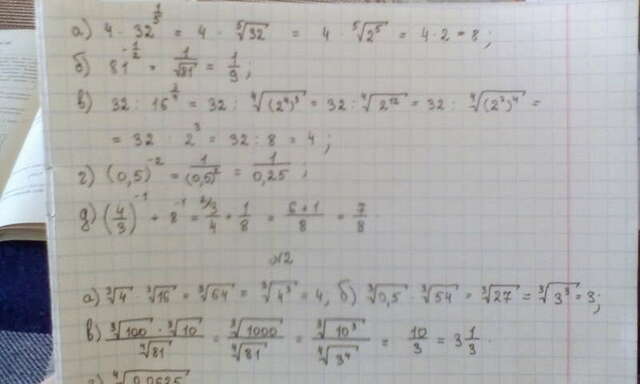 а) 4 · 32^(1/5) = 4 · ⁵√32 = 4 · ⁵√2⁵ = 4 · 2 = 8;
б) 81^(-1/2) = 1/√81 = 1/9;
в) 32 : 16^(3/4) = 32 : ⁴√(2⁴)³ = 32 : ⁴√2¹² = 32 : ⁴√(2³)⁴ =
= 32 : 2³ = 32 : 8 = 4;
г) (0,5)⁻² = 1/(0,5)² = 1/0,25;
д) (4/3)⁻¹ + 8⁻¹ = ²⁾3/4 + 1/8 = (6+1)/8 = 7/8
№2
а) ³√4 · ³√16 = ³√64 = ³√4³ = 4, б) ³√0,5 · ³√54 = ³√27 = ³√3³ = 3;
в) (³√100 · ³√10)/⁴√81 = ³√1000/⁴√81 = ³√10³/⁴√3⁴ = 10/3 = 3 1/3.
⁴√0,0625